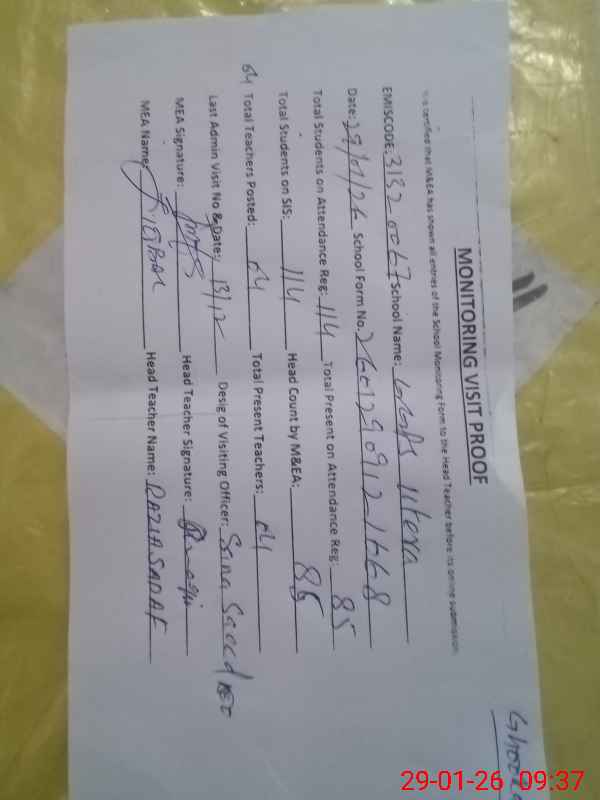 MONITORING VISIT PROOF
It is certified that M&EA has shown all entries of the School Monitoring Form to the Head Teacher before its online submission
EMISCODE: 31320067 School Name:
Date: 29/01/26 School Form No.
Total Students on Attendance Reg: 114 Total Present on Attendance Reg: 85
Total Students on SIS: 114 Head Count by M&EA: 85
04 Total Teachers Posted: 04 Total Present Teachers: 04
Last Admin Visit No & Date: 13/12 Desig of Visiting Officer: Saeed
MEA Signature: Head Teacher Signature:
MEA Name: Head Teacher Name: RAZIA SADAF
29-01-26 09:37